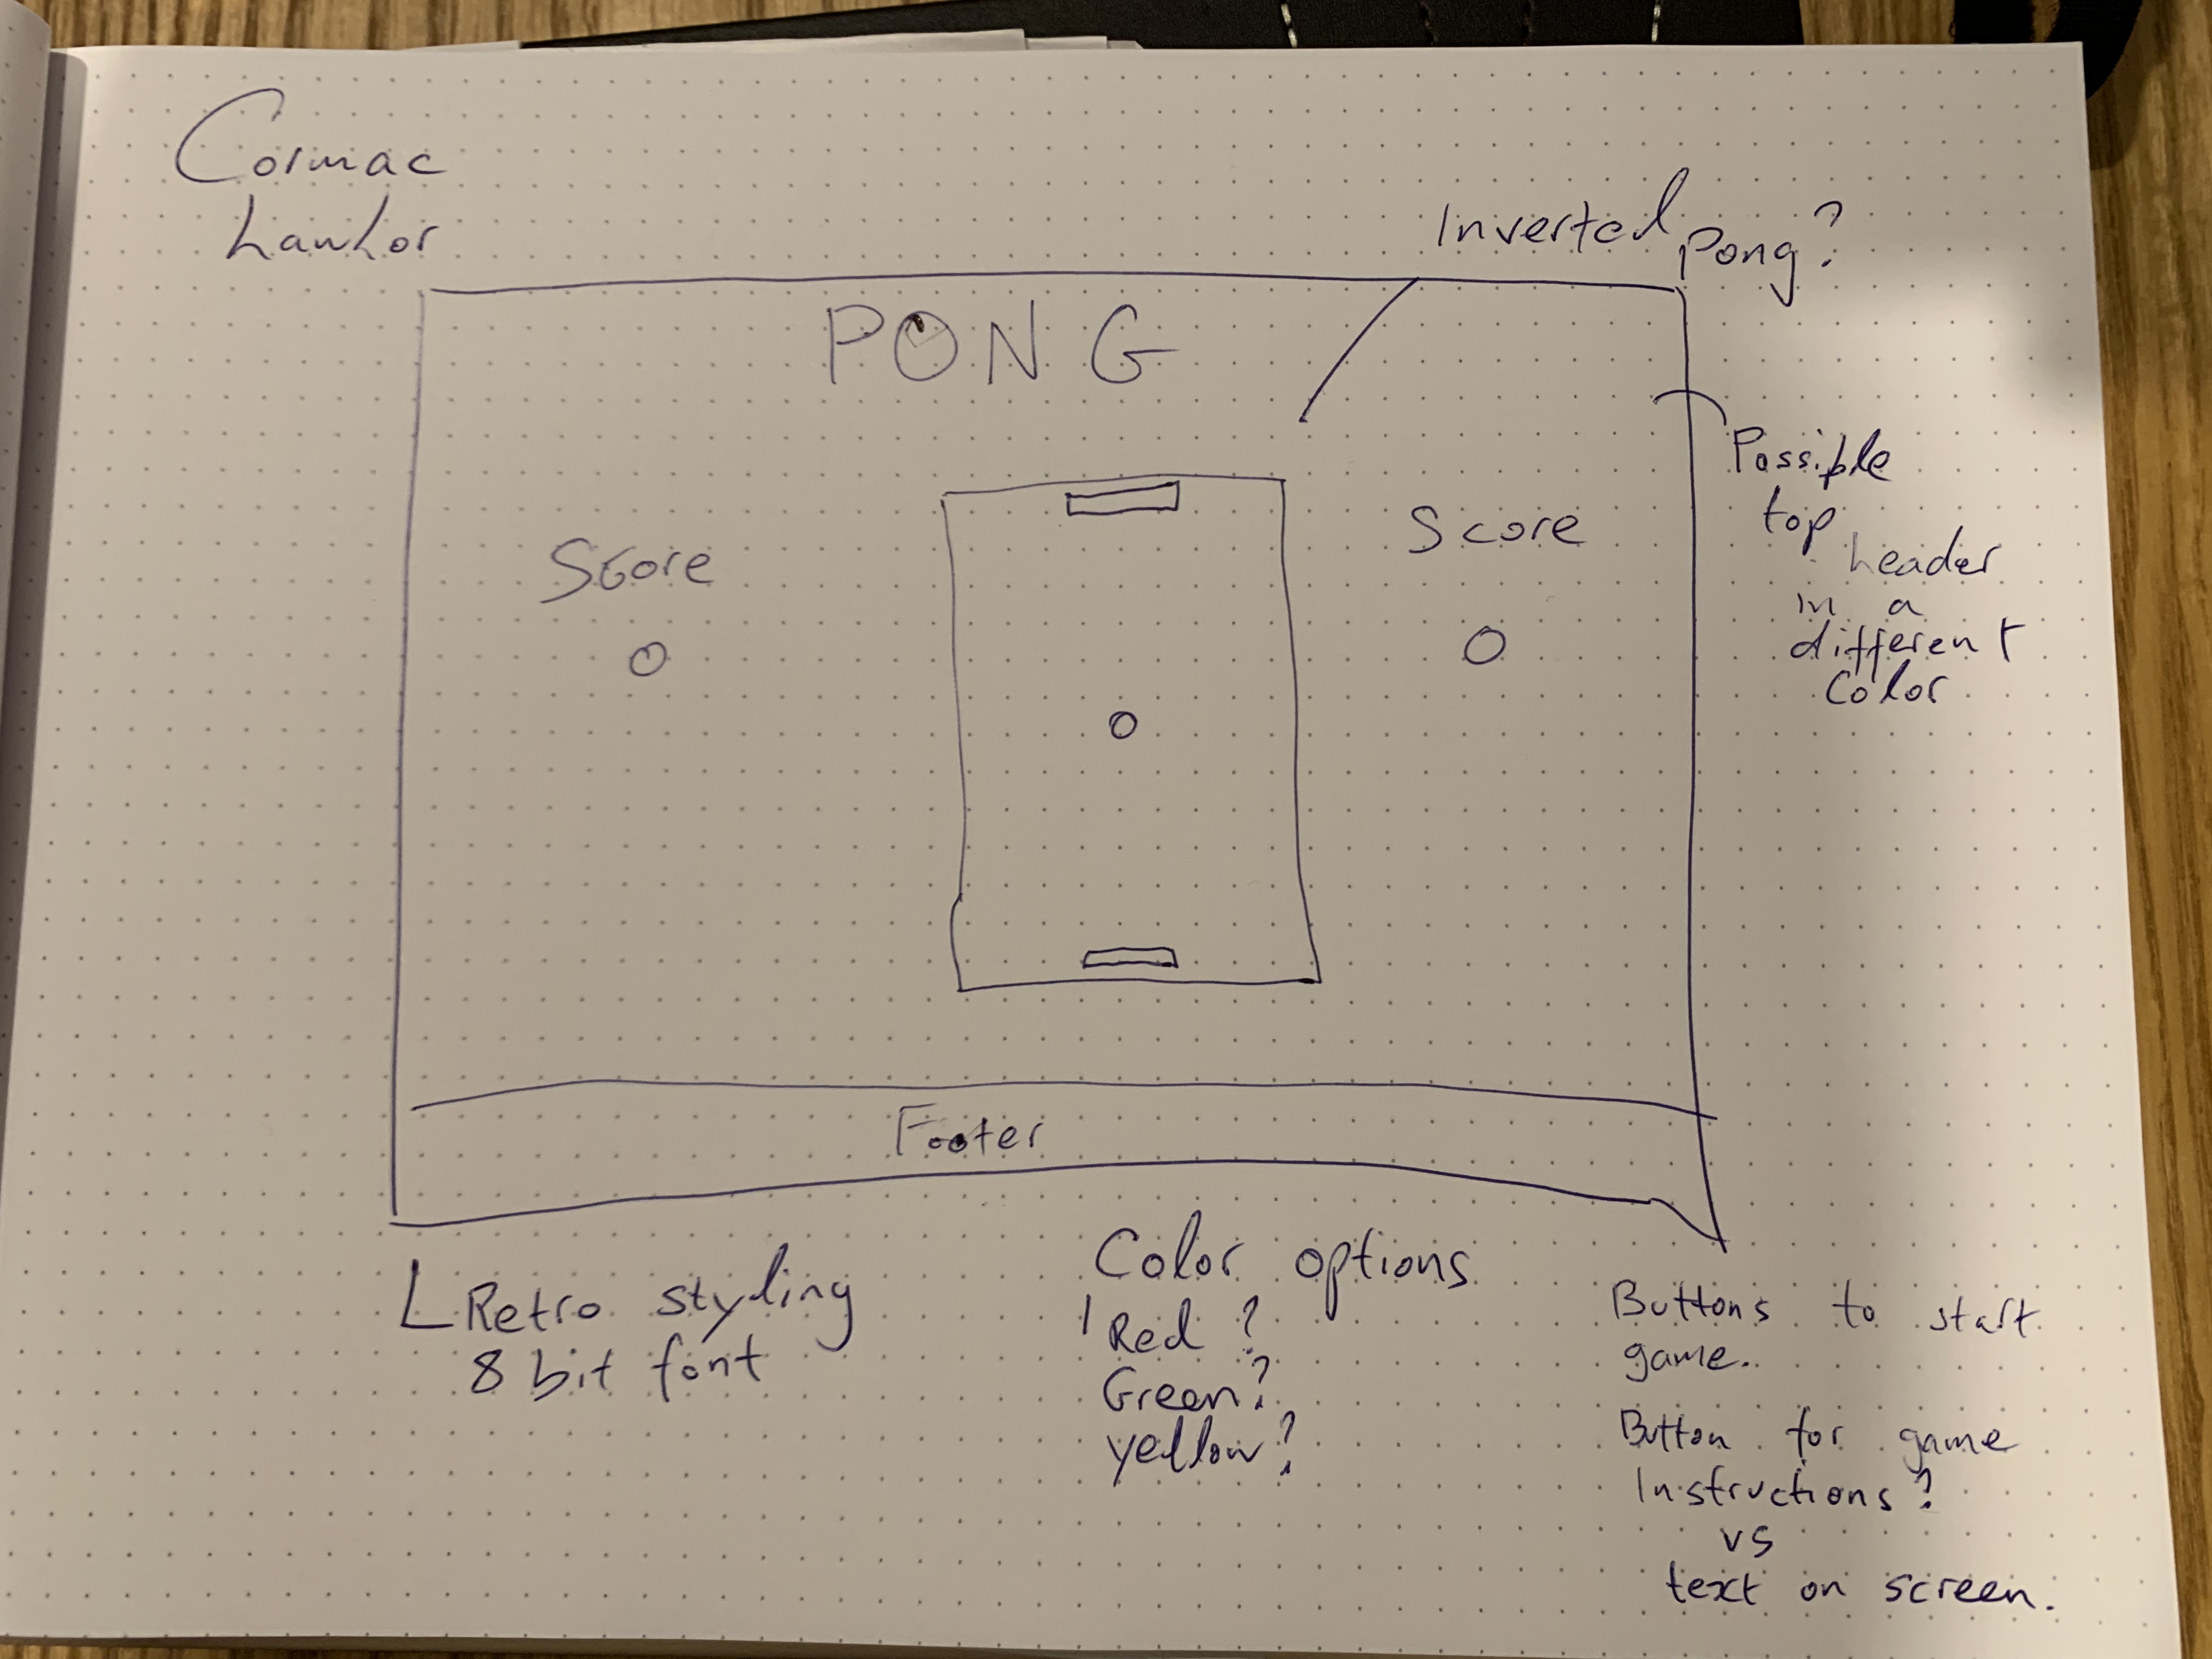 Cormac
Lawlor
Inverted Pong?
PONG
Possible
top header
in a
different
color
Score
0
Score
0
Footer
Retro styling
8 bit font
Color options
1 Red?
Green?
yellow?
Buttons to start
game..
Button for game
Instructions?
vs
text on screen.